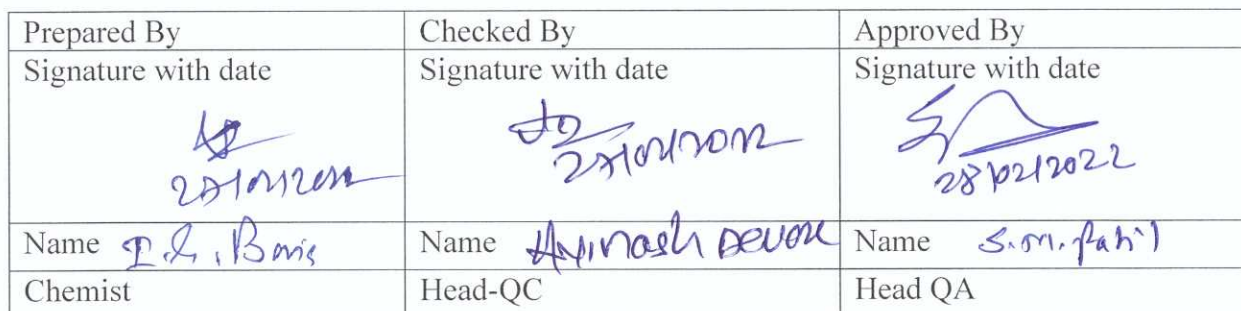 Prepared By Checked By Approved By
Signature with date Signature with date Signature with date
28/02/2022
Name Name Avinash Name S.M. Patil
Chemist Head-QC Head QA